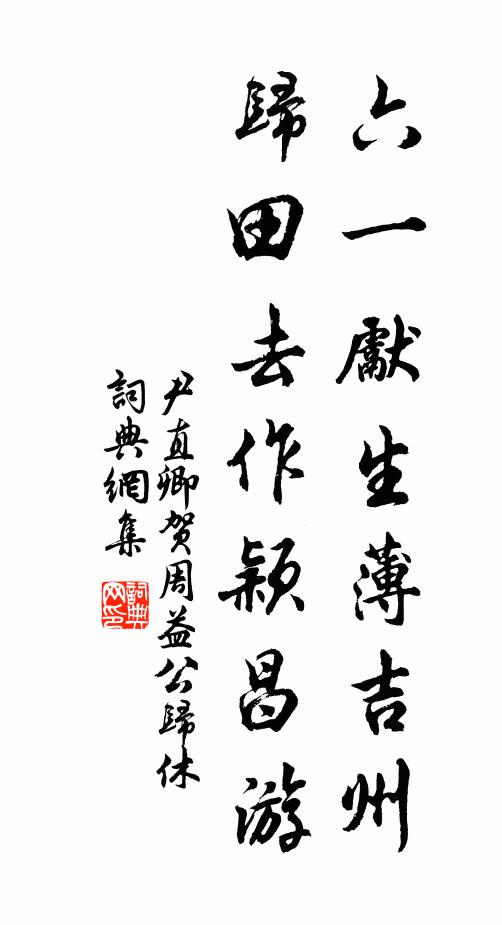 六一厭生薄吉州
歸田去作潁昌游
尹直卿贺周益公歸休
詞典網集
詞典
网印